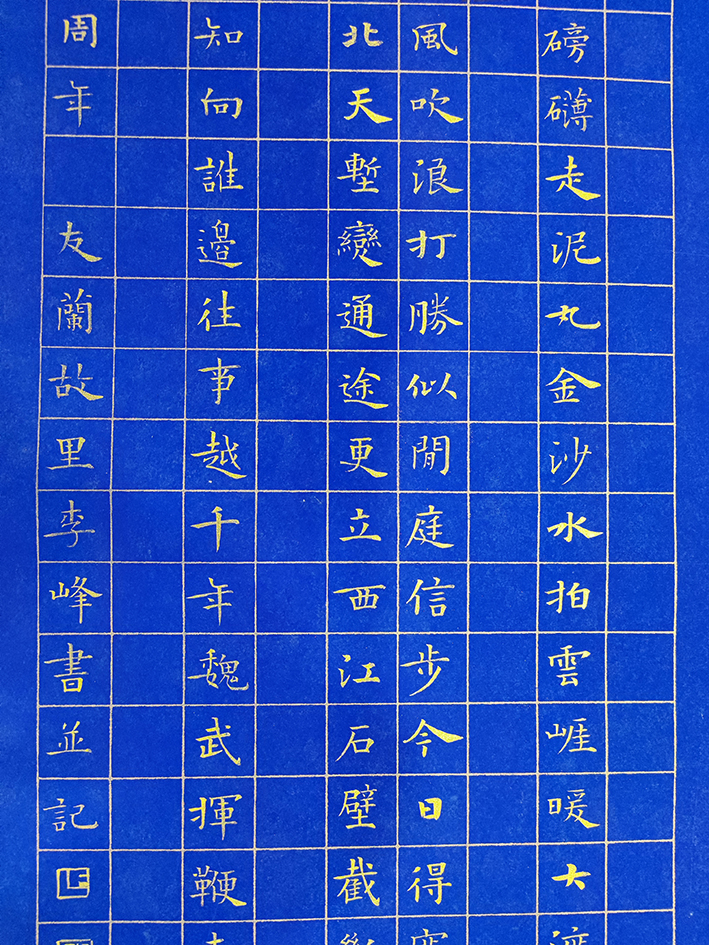 磅礴走泥丸金沙水拍雲崕暖大渡
風吹浪打勝似閒庭信步今日得寬
北天塹變通途更立西江石壁截
知向誰邊往事越千年魏武揮鞭
周年 友蘭故里李峰書並記